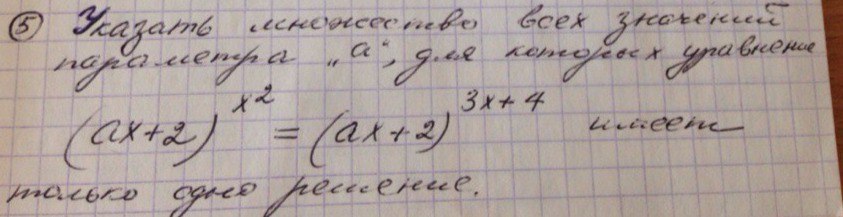 ⑤ Указать множество всех значений
параметра „a“, для которых уравнение
(ax+2)^{x^2} = (ax+2)^{3x+4} имеет
только одно решение.